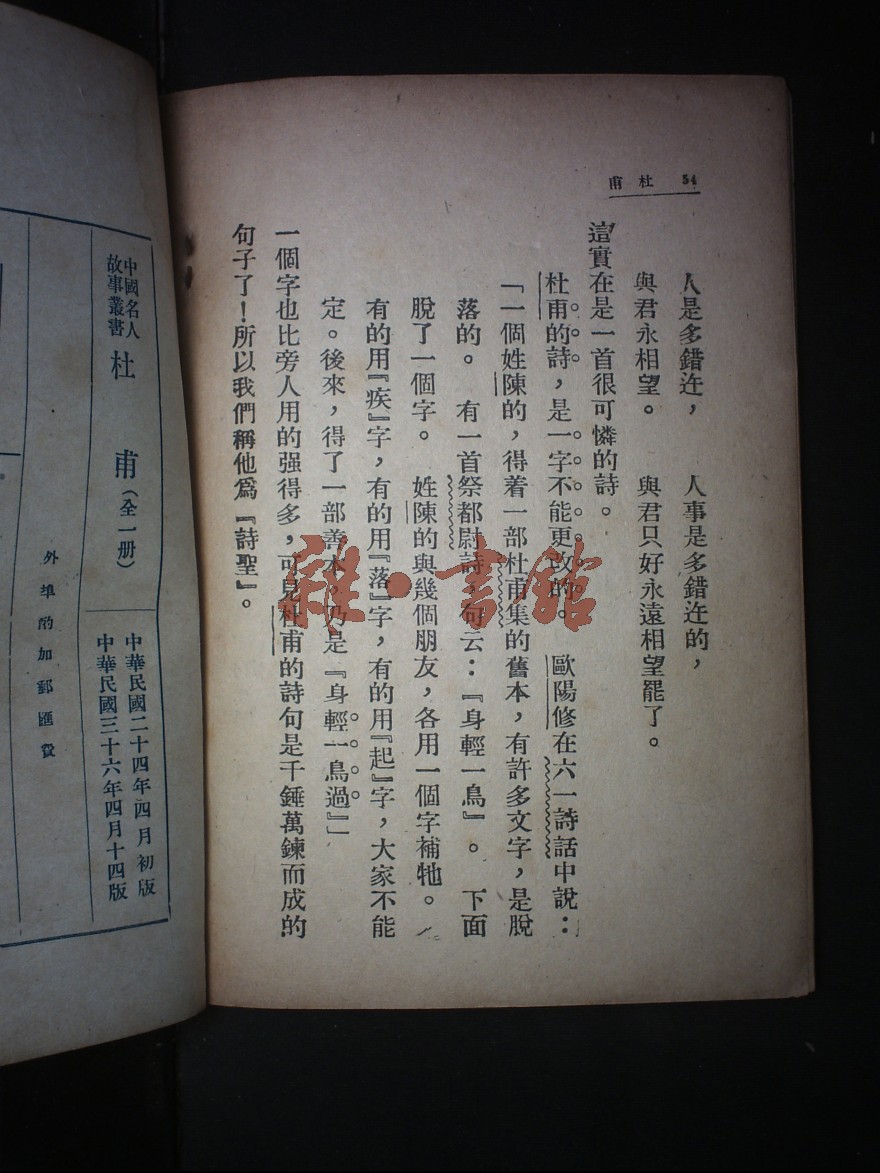 54 杜甫
人是多錯迕， 人事是多錯迕的，
與君永相望。 與君只好永遠相望罷了。
這實在是一首很可憐的詩。
杜甫的詩，是一字不能更改的。 歐陽修在六一詩話中說：
「一個姓陳的，得着一部杜甫集的舊本，有許多文字，是脫
落的。 有一首祭都尉詩，句云：『身輕一鳥』。 下面
脫了一個字。 姓陳的與幾個朋友，各用一個字補牠。
有的用『疾』字，有的用『落』字，有的用『起』字，大家不能
定。後來，得了一部善本。乃是『身輕一鳥過』」
一個字也比旁人用的强得多，可見杜甫的詩句是千錘萬鍊而成的
句子了！所以我們稱他爲『詩聖』。
雜·書館
中國名人
故事叢書
杜甫（全一册）
中華民國二十四年四月初版
中華民國三十六年四月十四版
外埠酌加郵匯費